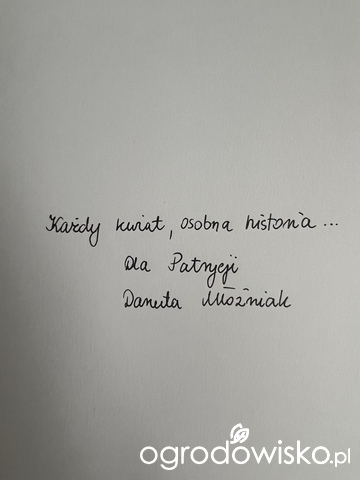 Każdy kwiat, osobna historia...
Dla Patrycji
Danuta Młoźniak
ogrodowisko.pl